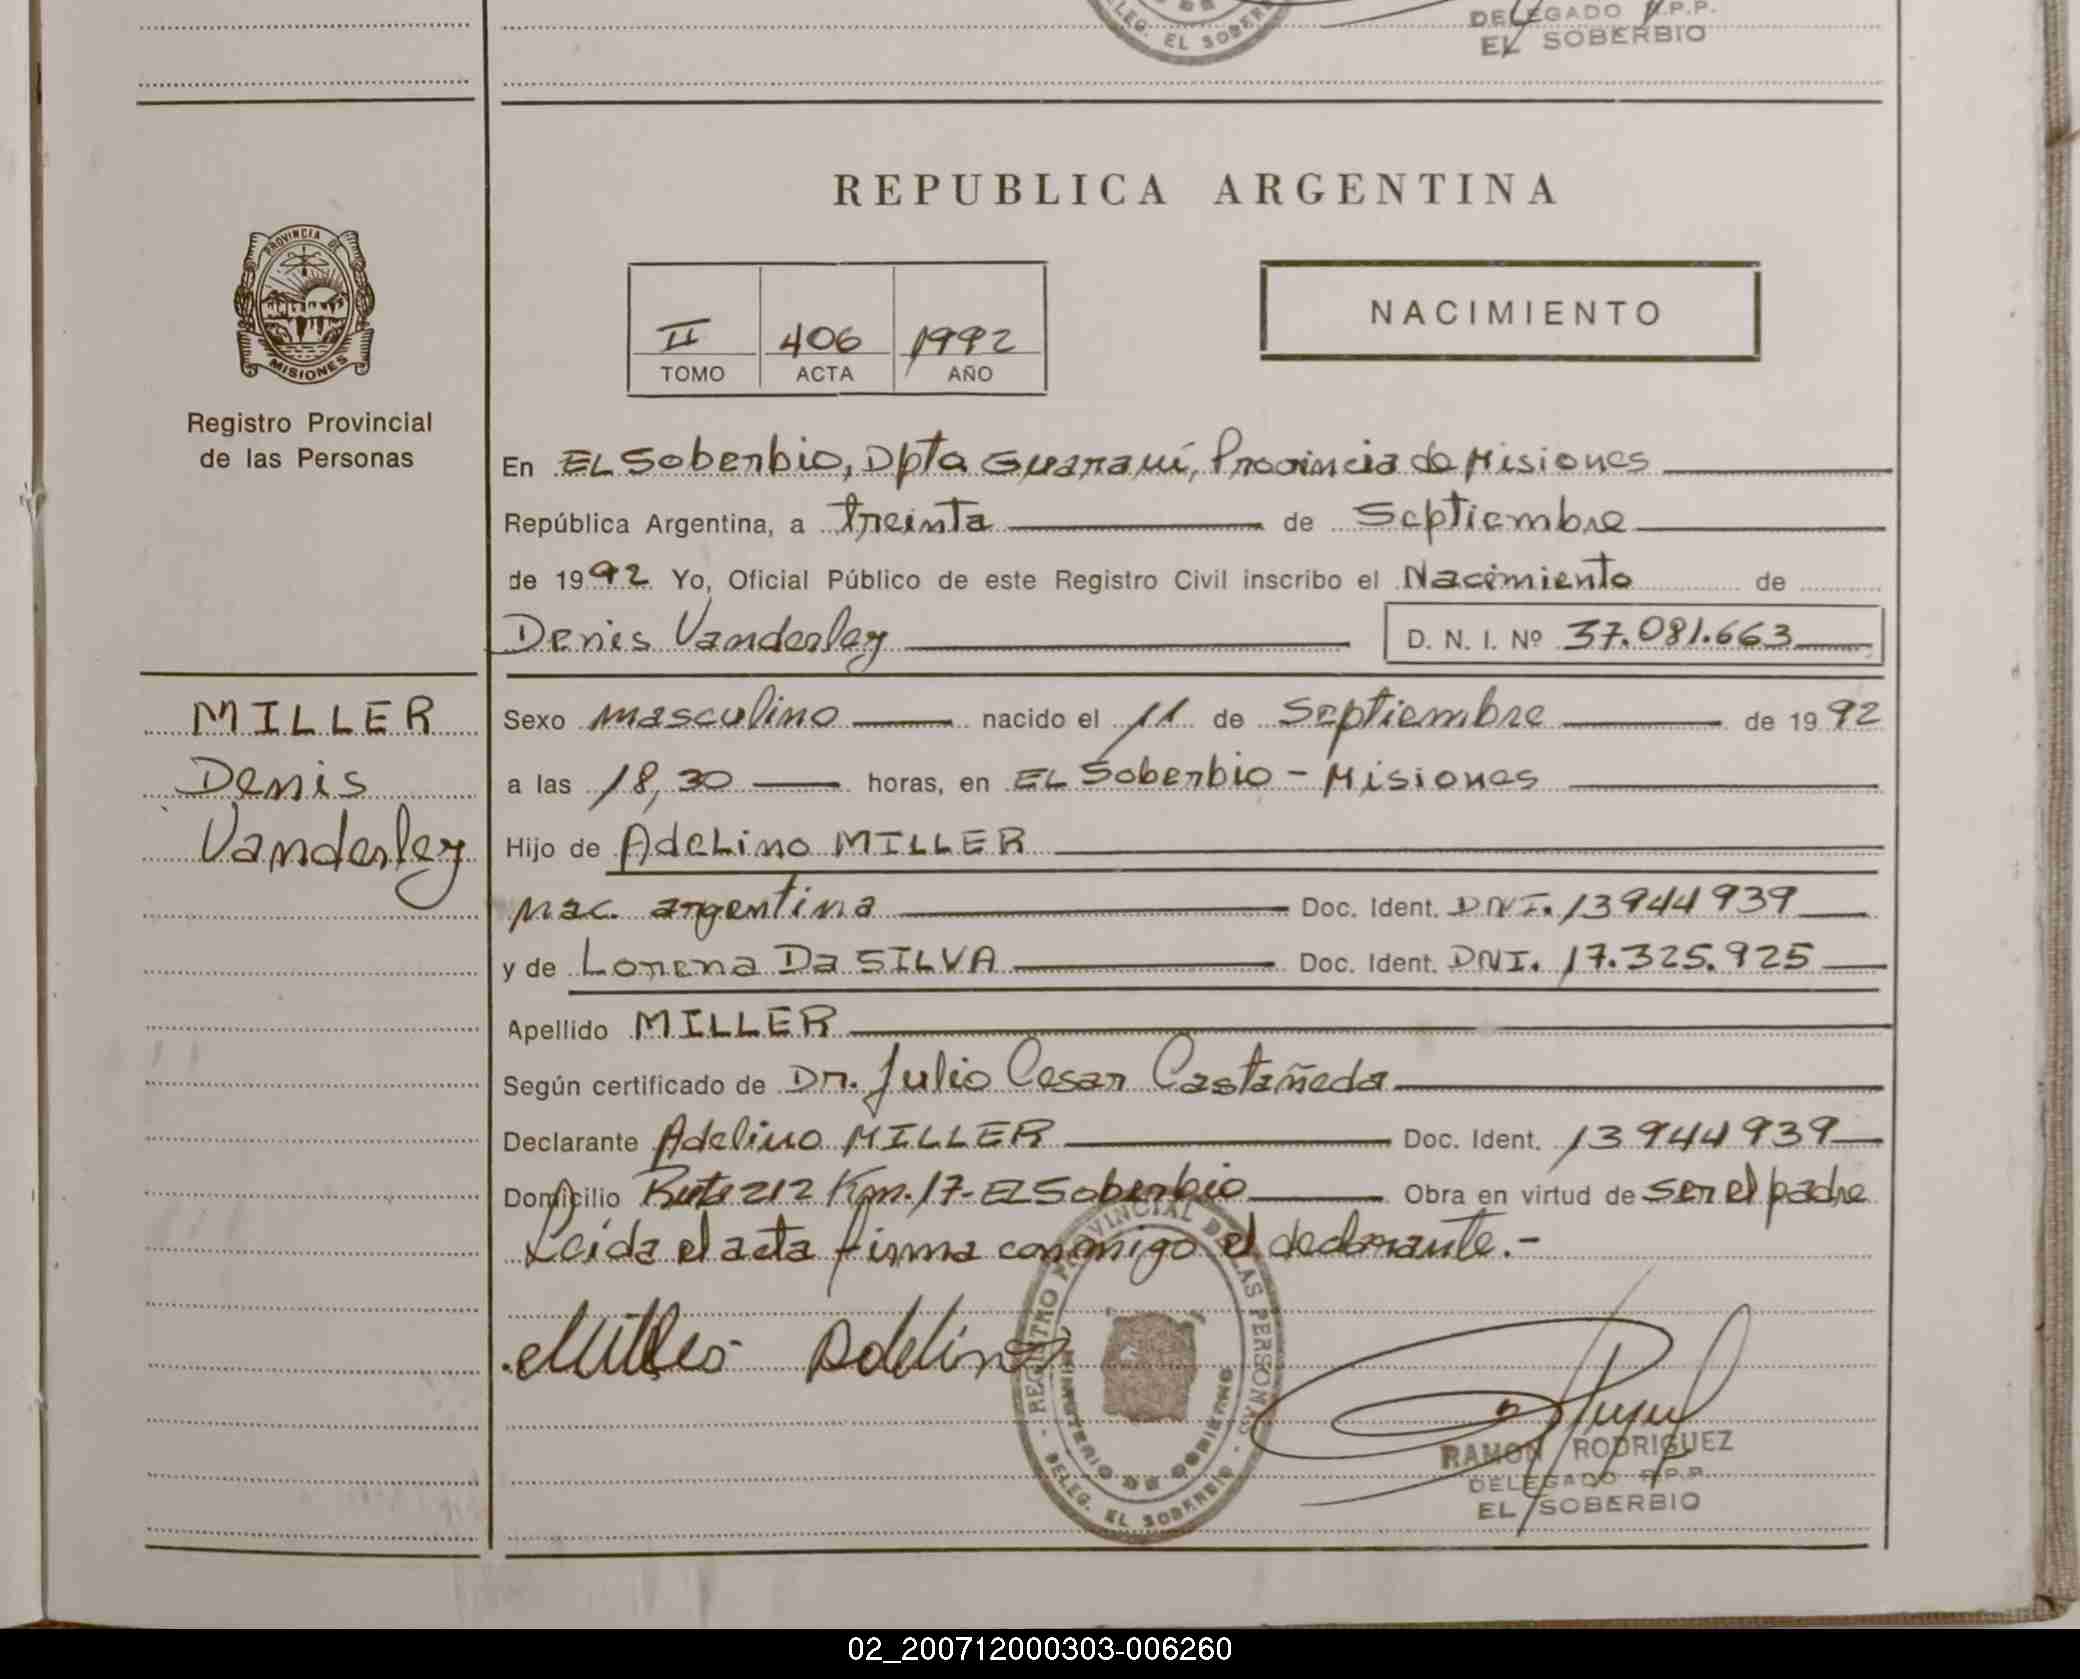 DELEG. EL SOBERBIO
DELEGADO R.P.P.
EL SOBERBIO
REPUBLICA ARGENTINA
PROVINCIA DE
MISIONES
Registro Provincial
de las Personas
II 406 1992
TOMO ACTA AÑO
NACIMIENTO
En EL Soberbio, Dpto Guaraní, Provincia de Misiones
República Argentina, a treinta de Septiembre
de 1992 Yo, Oficial Público de este Registro Civil inscribo el Nacimiento de
Denis Vanderley D. N. I. Nº 37.081.663
MILLER
Denis
Vanderley
Sexo masculino nacido el 11 de Septiembre de 1992
a las 18,30 horas, en EL Soberbio - Misiones
Hijo de Adelino MILLER
nac. argentina Doc. Ident. DNI. 13944939
y de Lorena Da SILVA Doc. Ident. DNI. 17.325.925
Apellido MILLER
Según certificado de Dr. Julio Cesar Castañeda
Declarante Adelino MILLER Doc. Ident. 13944939
Domicilio Ruta 212 Km. 17- El Soberbio Obra en virtud de ser el padre
Leida el acta firma conmigo el declarante.-
Miller Adelino
REGISTRO PROVINCIAL DE LAS PERSONAS
MINISTERIO DE GOBIERNO
DELEG. EL SOBERBIO
RAMON RODRIGUEZ
DELEGADO R.P.P.
EL SOBERBIO
02_200712000303-006260